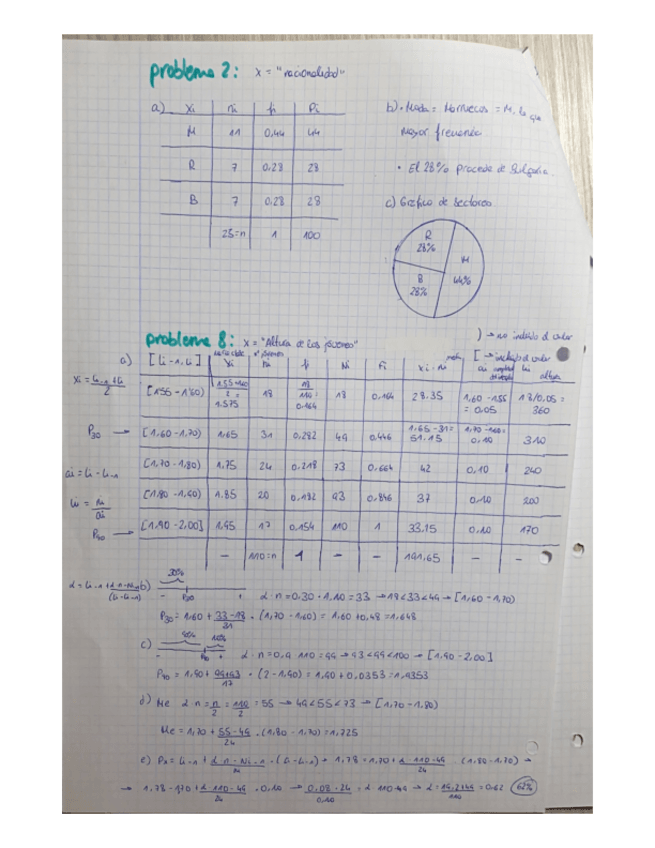 problema 2: x = "nacionalidad"
a) xi ni fi Pi
M 11 0,44 44
R 7 0,28 28
B 7 0,28 28
25=n 1 100
b) • Moda = Marruecos = M, la que
mayor frecuencia
• El 28% procede de Bulgaria.
c) Gráfico de sectores
R 28%
M 44%
B 28%
problema 8: x = "Altura de los jóvenes"
) → no incluido el valor
[ → incluido el valor
a) [Li-1, Li) xi ni fi Ni Fi xi · ni ai li
xi = Li-1 + Li / 2
[1'55 - 1'60) 1.575 18 18/110 = 0.164 18 0,164 28.35 1,60 - 1.55 = 0.05 18/0,05 = 360
P30 → [1,60 - 1,70) 1,65 31 0,282 49 0,446 1,65 · 31 = 51,15 1,70 - 1,60 = 0,10 310
[1,70 - 1,80) 1,75 24 0,218 73 0,664 42 0,10 240
ai = Li - Li-1
[1,80 - 1,90) 1.85 20 0,182 93 0,846 37 0,10 200
li = ni / ai
P90 → [1,90 - 2,00] 1,95 17 0,154 110 1 33.15 0,10 170
- 110=n 1 - - 191,65 - -
b) 30%
- P30 +
α · n = 0,30 · 1,10 = 33 → 18 < 33 < 49 → [1,60 - 1,70)
P30 = 1,60 + 33-18 / 31 · (1,70 - 1,60) = 1,60 + 0,48 = 1,648
c) 90% 10%
- P90 +
α · n = 0,9 · 110 = 99 → 93 < 99 < 100 → [1,90 - 2,00]
P90 = 1,90 + 99-93 / 17 · (2 - 1,90) = 1,90 + 0,0353 = 1,9353
d) Me α · n = n/2 = 110/2 = 55 → 49 < 55 < 73 → [1,70 - 1,80)
Me = 1,70 + 55 - 49 / 24 · (1,80 - 1,70) = 1,725
e) Pα = Li-1 + α · n - Ni-1 / Ni · (Li - Li-1) → 1,78 = 1,70 + α · 110 - 49 / 24 · (1,80 - 1,70) →
→ 1,78 - 1,70 + α · 110 - 49 / 24 · 0,10 → 0,08 · 24 / 0,10 = α · 110 - 49 → α = 19,2+49 / 110 = 0,62 62%